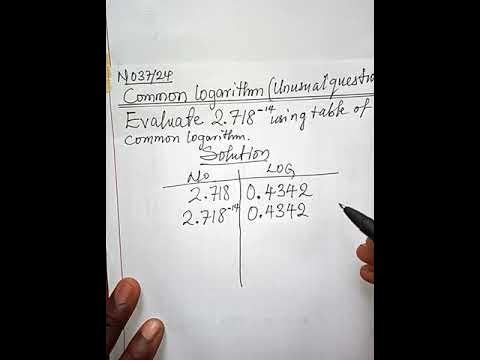 N037/24
Common logarithm (Unusual questio
Evaluate 2.718⁻¹⁴ using table of
Common logarithm.
Solution
No LOG
2.718 0.4342
2.718⁻¹⁴ 0.4342